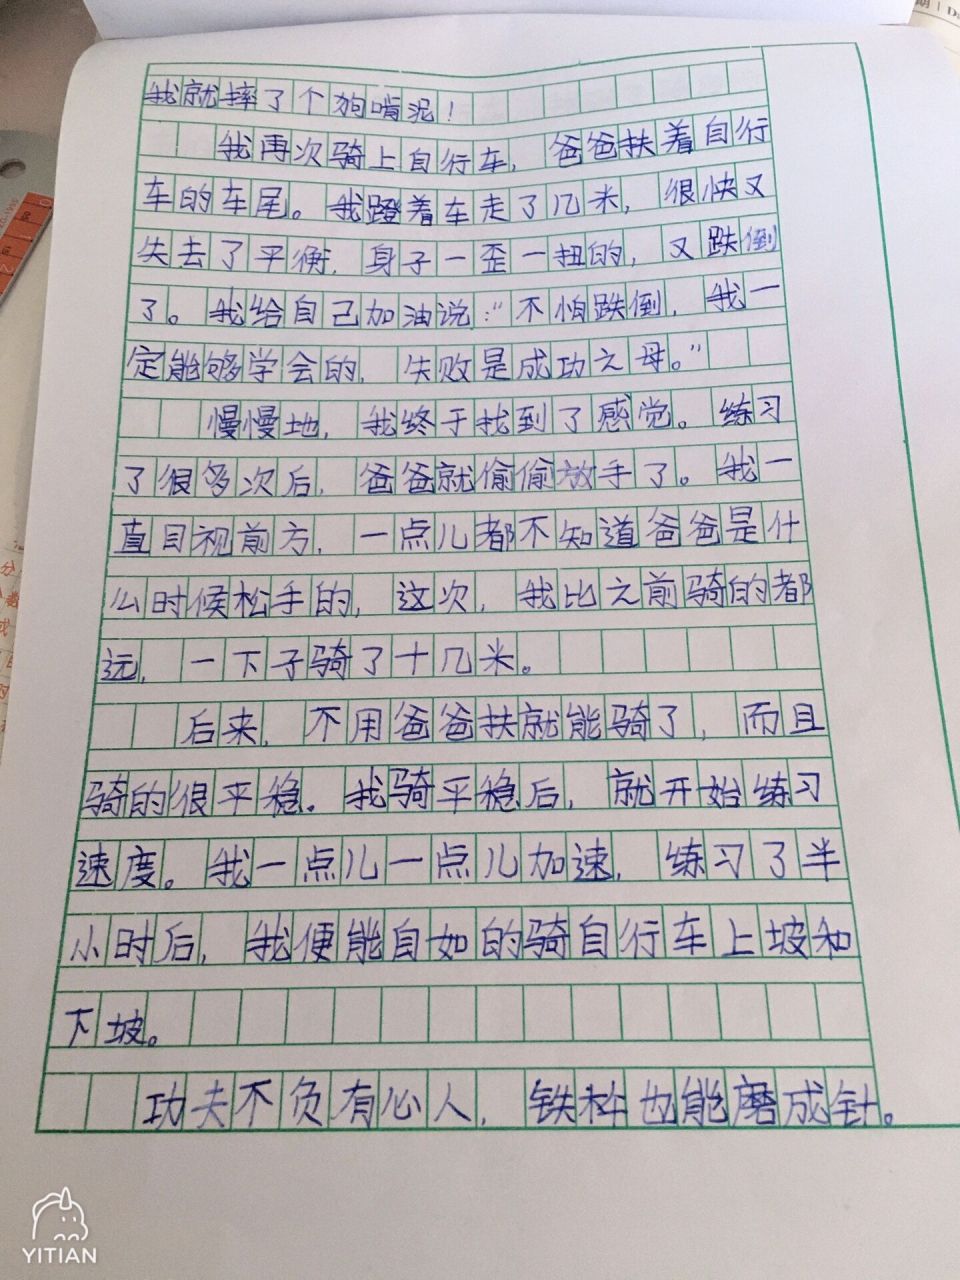 我就摔了个狗啃泥！
我再次骑上自行车，爸爸扶着自行
车的车尾。我蹬着车走了几米，很快又
失去了平衡，身子一歪一扭的，又跌倒
了。我给自己加油说：“不怕跌倒，我一
定能够学会的，失败是成功之母。”
慢慢地，我终于找到了感觉。练习
了很多次后，爸爸就偷偷放手了。我一
直目视前方，一点儿都不知道爸爸是什
么时候松手的，这次，我比之前骑的都
远，一下子骑了十几米。
后来，不用爸爸扶就能骑了，而且
骑的很平稳。我骑平稳后，就开始练习
速度。我一点儿一点儿加速，练习了半
小时后，我便能自如的骑自行车上坡和
下坡。
功夫不负有心人，铁杵也能磨成针。
YITIAN